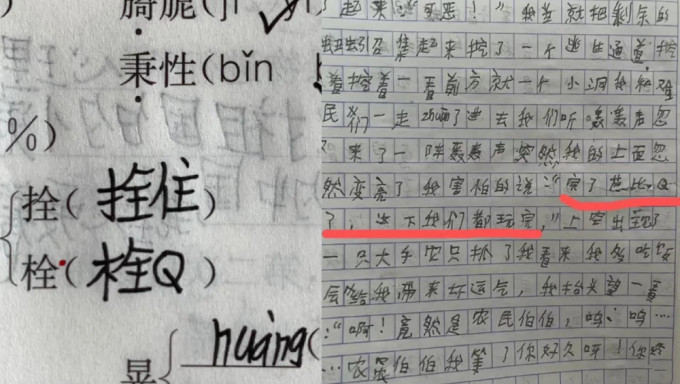 脆(
秉性(bǐn
%)
拴(拴住)
栓(栓Q)
晃{huàng(
了起来:“可恶!”我当就把剩余的
蚯蚓召集起来挖了一个逃生通道,挖
着挖着一看前方就一个小洞我和难
民们一走动晒了进去我们听轰轰声忽
来了一阵轰轰声突然我的上面忽
然变亮了我害怕的说:“完了芭比Q
了,这下我们都玩完,”上空出现了
一只大手农只抓了我看来我多吃饭
会给我带来好运气,我抬头望一看
:“啊!竟然是农民伯伯,呜:呜…
…农民伯伯我等了你好久呀!你终